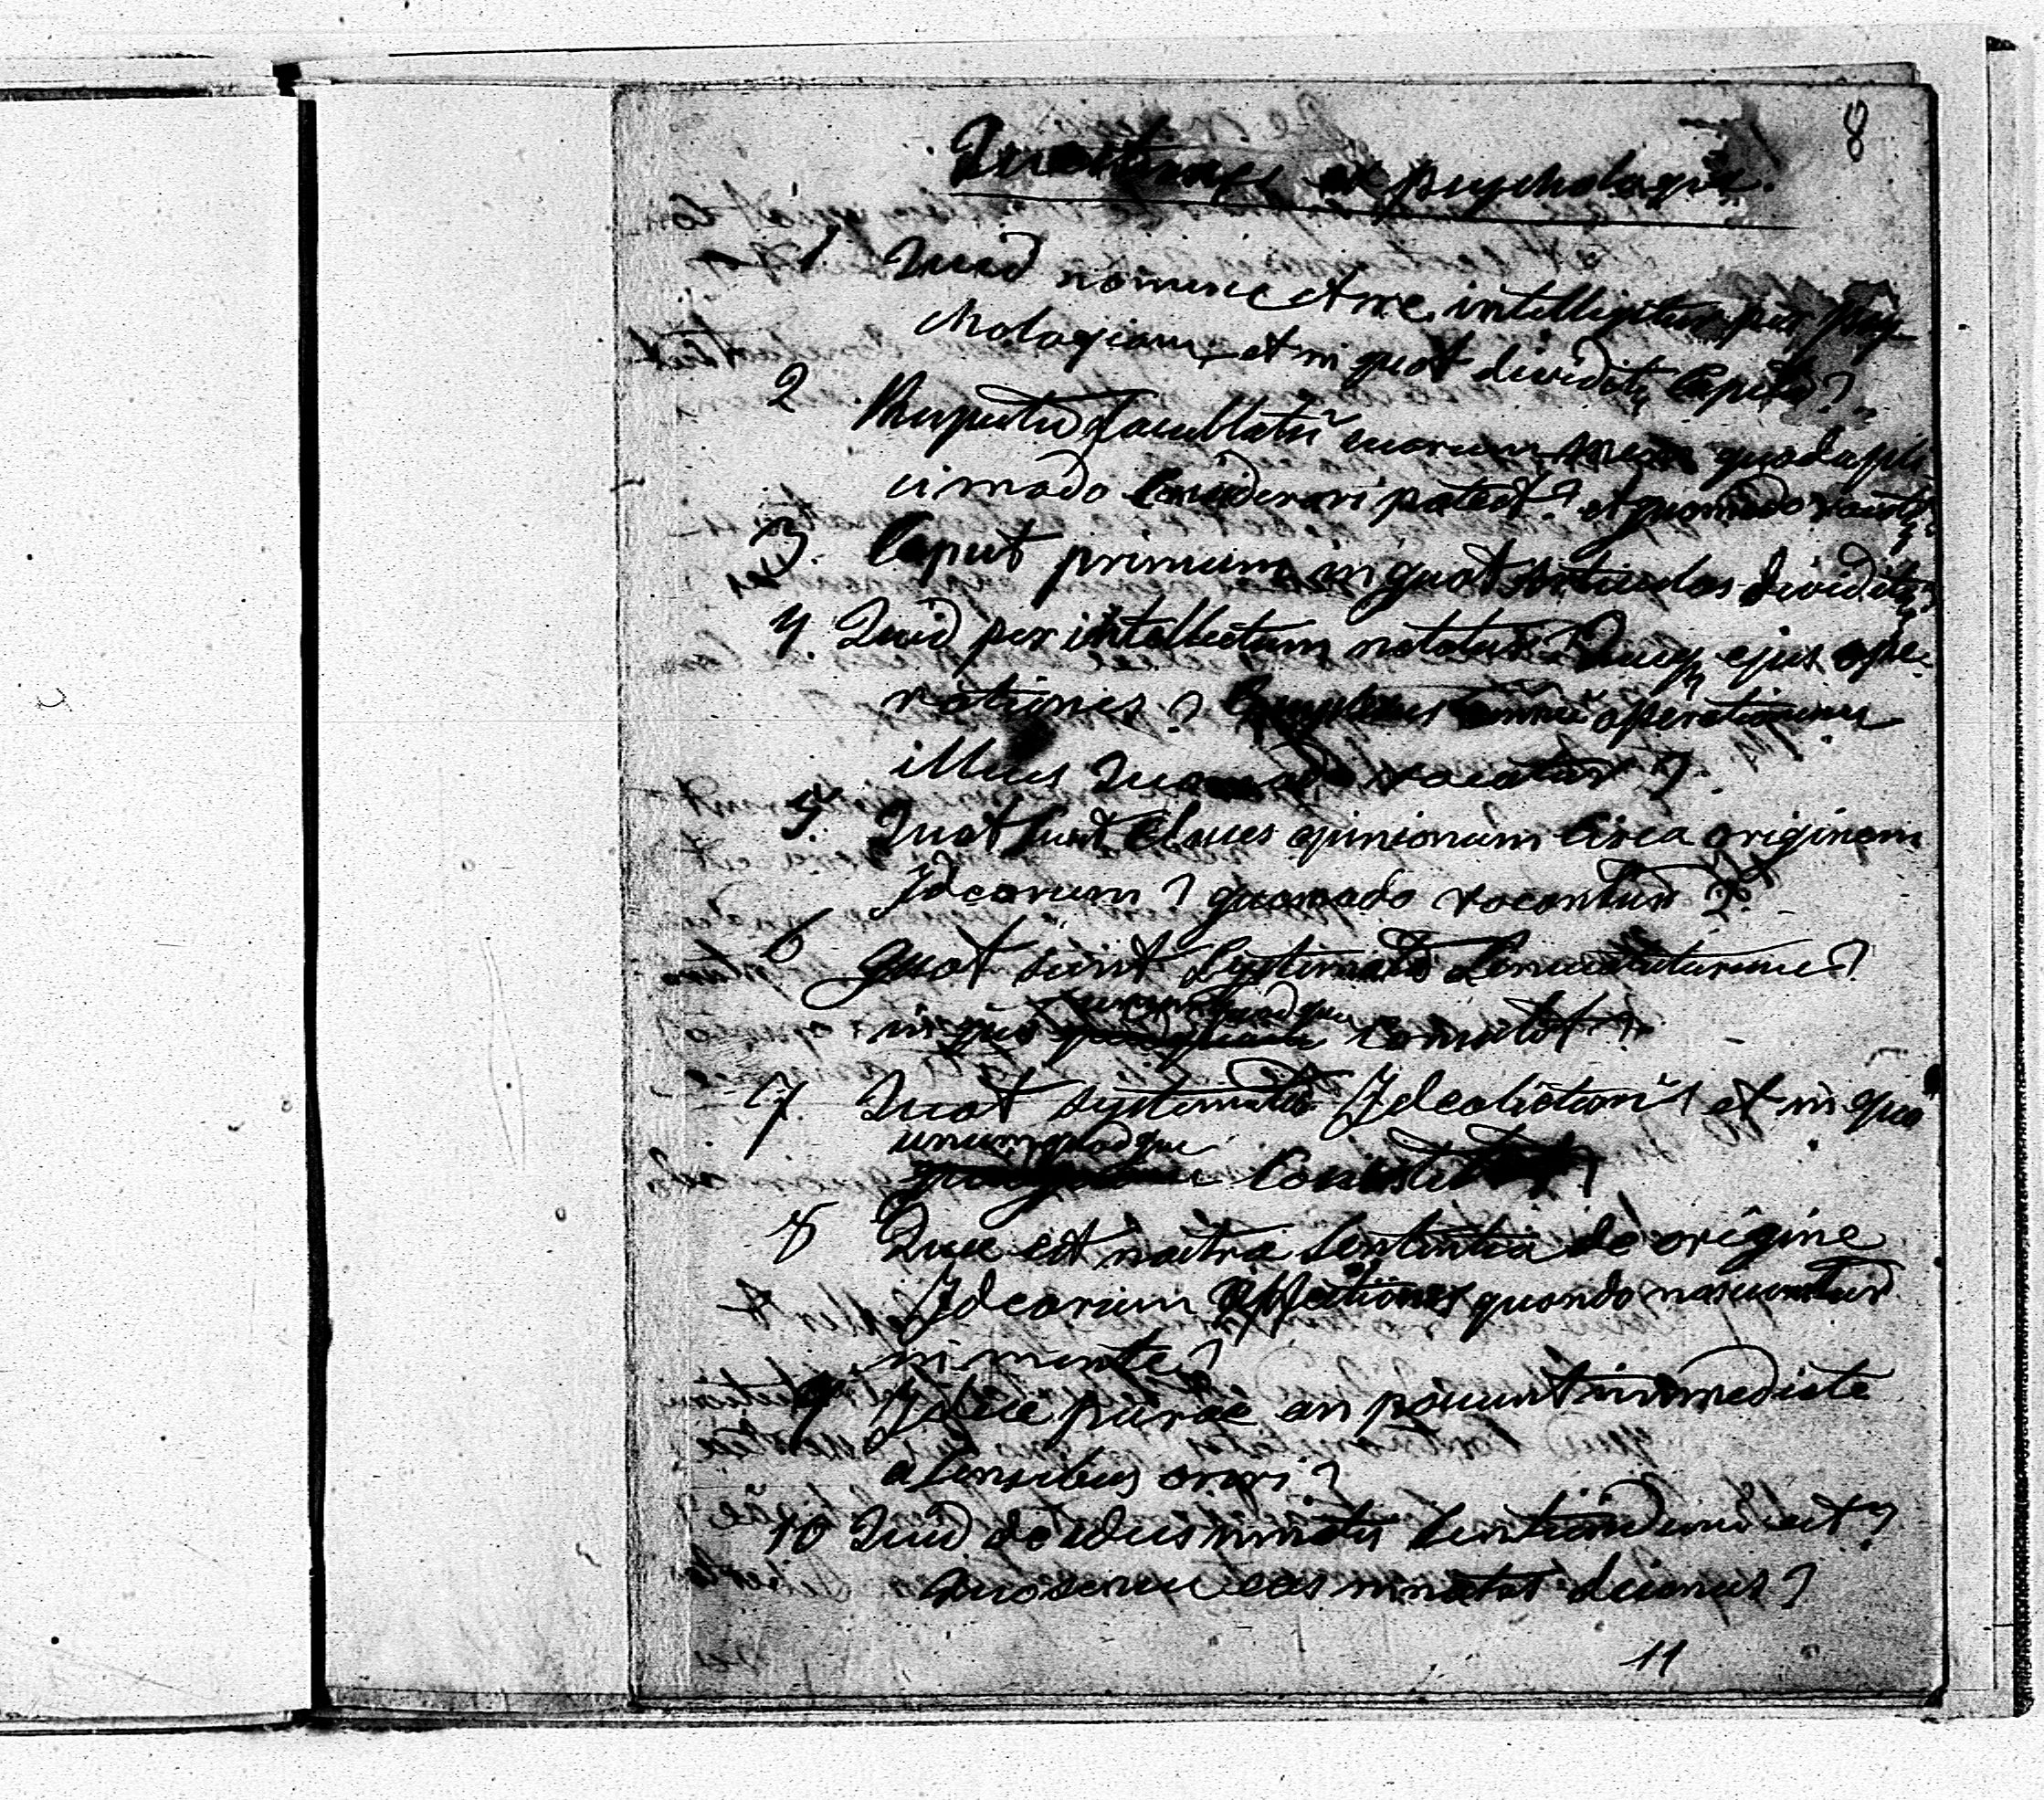 8
Quæstiones ex psychologia.
1. Quid nomine et re intelligitur per psy-
chologiam, et in quot dividitᷣ Capita?
2 Respectu facultatũ suarum mens quadupli
ci modo Considerari potest? et quomodo
3. Caput primum in quot Articulos dividitᷣ?
4. Quid per intellectum notatur? Quæ ejus ope-
rationes? Complexus omniũ operationum
illius Quomodo vocatur?
5. Quot sunt Classes opinionum Circa originem
Idearum? quomodo vocantur?
6 quot sunt Systemata
in quo unumquodque Consistat?
7. Quot systemata Idealistarũ? et in quo
unumquodque Consistit?
8 Quæ est nostra Sententia de origine
Idearum quando nascuntur
in mente?
9 Ideæ puræ an possunt immediate
a Sensibus oriri?
10 Quid de ideis innatis Sentiendum est?
Quo sensu eas innatas dicimus?
11